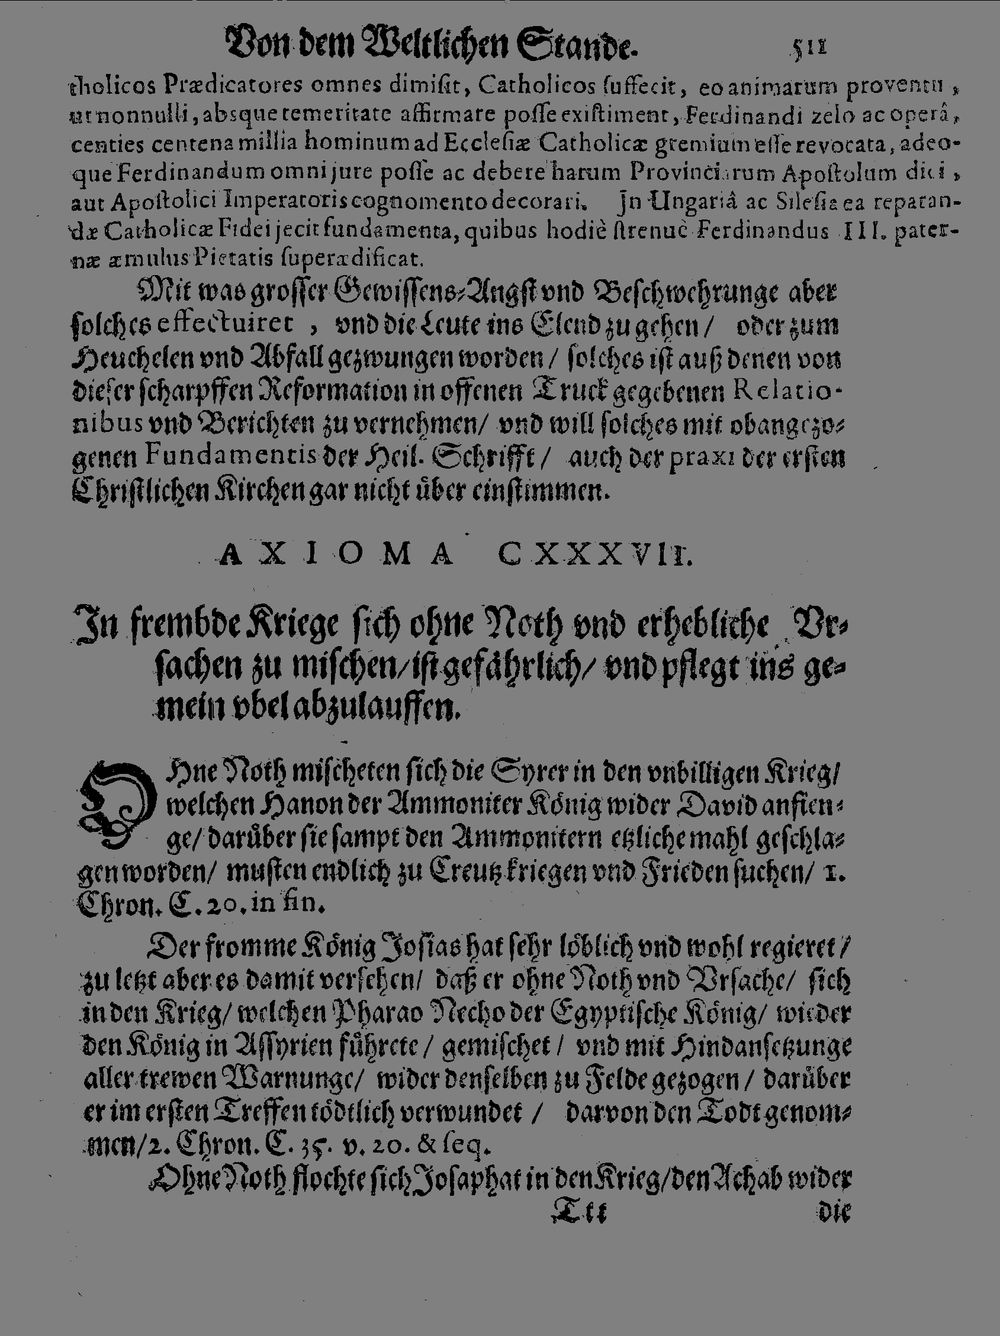 Von dem Weltlichen Stande. 511
tholicos Prædicatores omnes dimisit, Catholicos suffecit, eo animarum proventu,
ut nonnulli, absque temeritate affirmare posse existiment, Ferdinandi zelo ac operâ,
centies centena millia hominum ad Ecclesiæ Catholicæ gremium esse revocata, adeo-
que Ferdinandum omni jure posse ac debere harum Provinciarum Apostolum dici,
aut Apostolici Imperatoris cognomento decorari. In Ungariâ ac Silesia ea reparan-
dæ Catholicæ Fidei jecit fundamenta, quibus hodiè strenuè Ferdinandus III. pater-
næ æmulus Pietatis superædificat.
Mit was grosser Gewissens-Angst vnd Beschwehrunge aber
solches effectuiret, vnd die Leute ins Elend zu gehen/ oder zum
Heuchelen vnd Abfall gezwungen worden/ solches ist auß denen von
dieser scharpffen Reformation in offenen Truck gegebenen Relatio-
nibus vnd Berichten zu vernehmen/ vnd will solches mit obangezo-
genen Fundamentis der Heil. Schrifft/ auch der praxi der ersten
Christlichen Kirchen gar nicht über einstimmen.
AXIOMA CXXXVII.
In frembde Kriege sich ohne Noth vnd erhebliche Vr-
sachen zu mischen/ ist gefährlich/ vnd pflegt ins ge-
mein vbel abzulauffen.
OHne Noth mischeten sich die Syrer in den vnbilligen Krieg/
welchen Hanon der Ammoniter König wider David anfien-
ge/ darüber sie sampt den Ammonitern etzliche mahl geschla-
gen worden/ musten endlich zu Creutz kriegen vnd Frieden suchen/ 1.
Chron. C. 20. in fin.
Der fromme König Josias hat sehr löblich vnd wohl regieret/
zu letzt aber es damit versehen/ daß er ohne Noth vnd Vrsache/ sich
in den Krieg/ welchen Pharao Necho der Egyptische König/ wieder
den König in Assyrien führete/ gemischet/ vnd mit Hindansetzunge
aller trewen Warnunge/ wider denselben zu Felde gezogen/ darüber
er im ersten Treffen tödtlich verwundet/ darvon den Todt genom-
men/ 2. Chron. C. 35. v. 20. & seq.
Ohne Noth flochte sich Josaphat in den Krieg/ den Achab wider
Ttt die